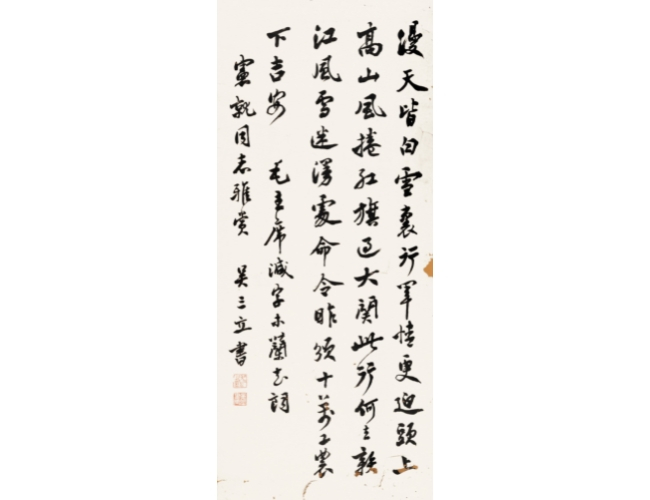 漫天皆白雪裏行軍情更迫頭上
高山風捲紅旗過大関此行何去贛
江風雪迷漫處命令昨頒十萬工農
下吉安 毛主席減字木蘭花詞
憲同志雅赏 吴三立書